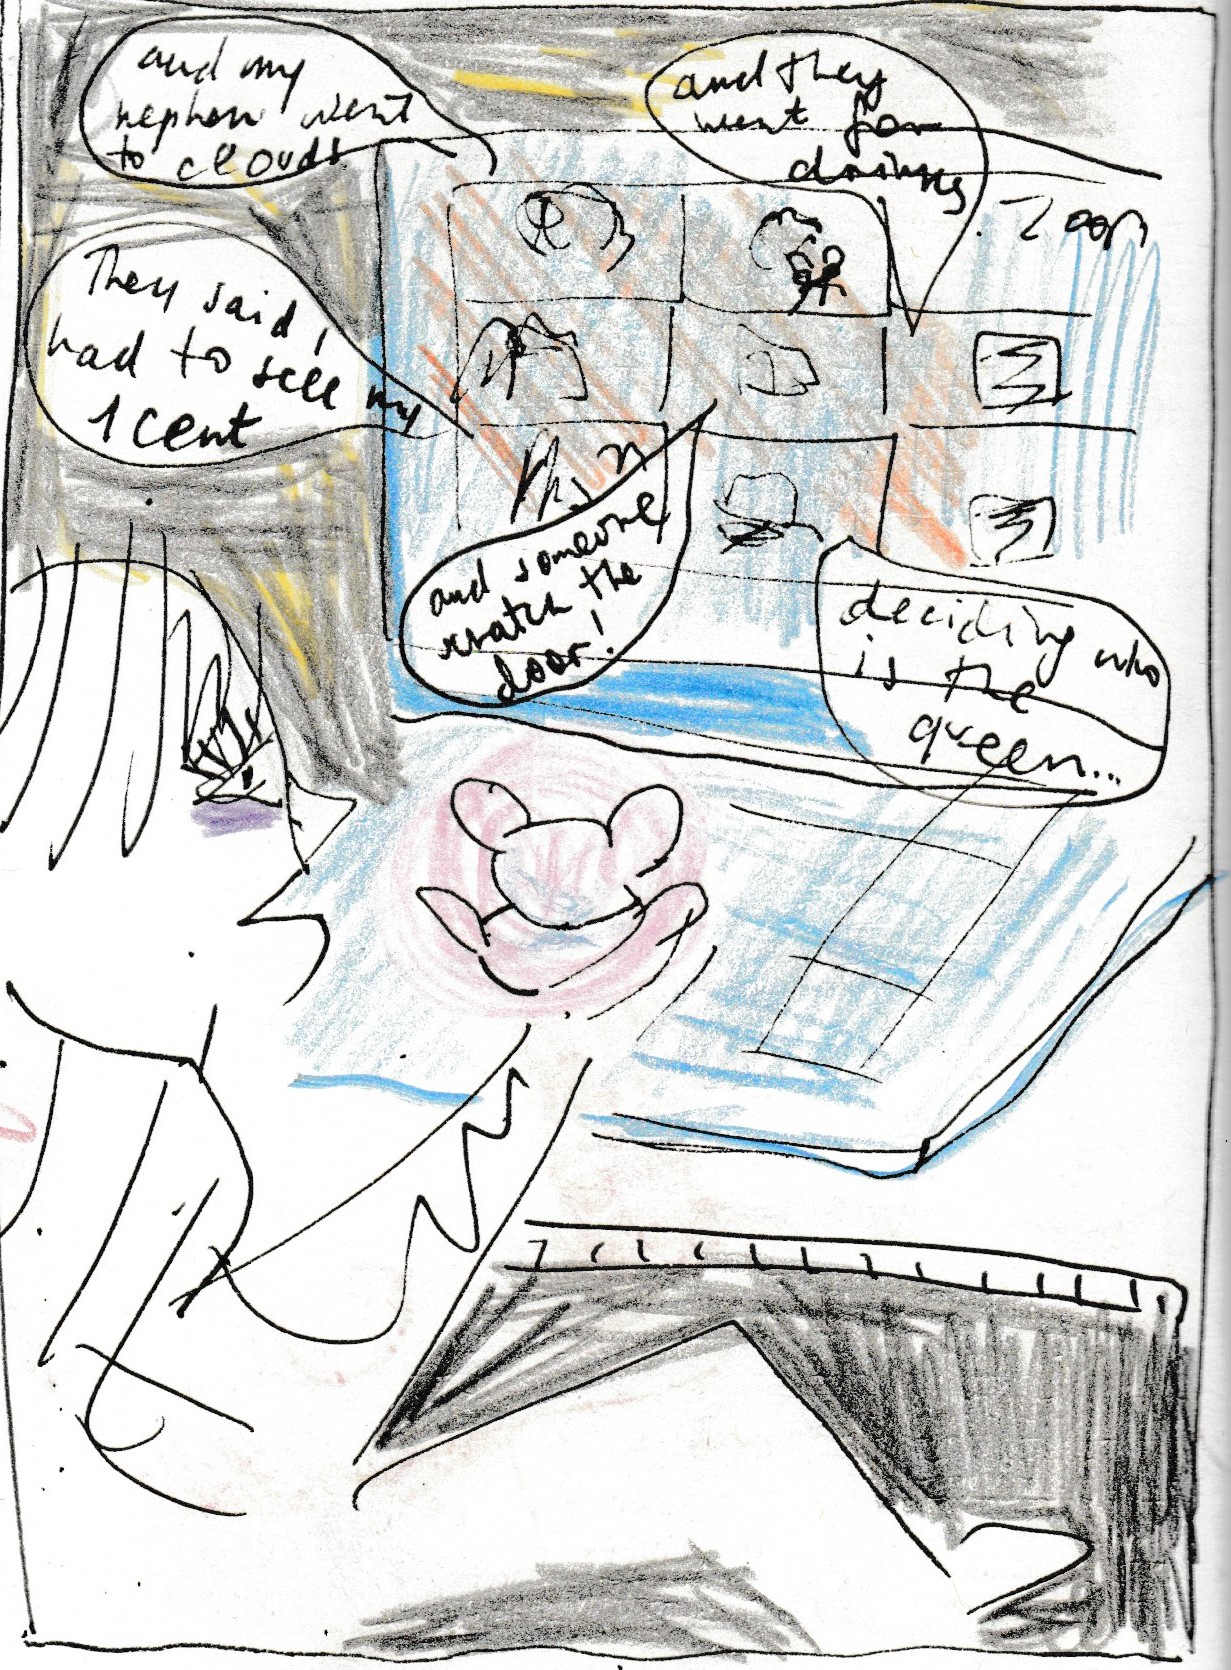 and my
nephew went
to clouds
and they
went for
drinks
Zoom
They said I
had to sell my
1 cent
and someone
scratch the
door!
deciding who
is the
queen...